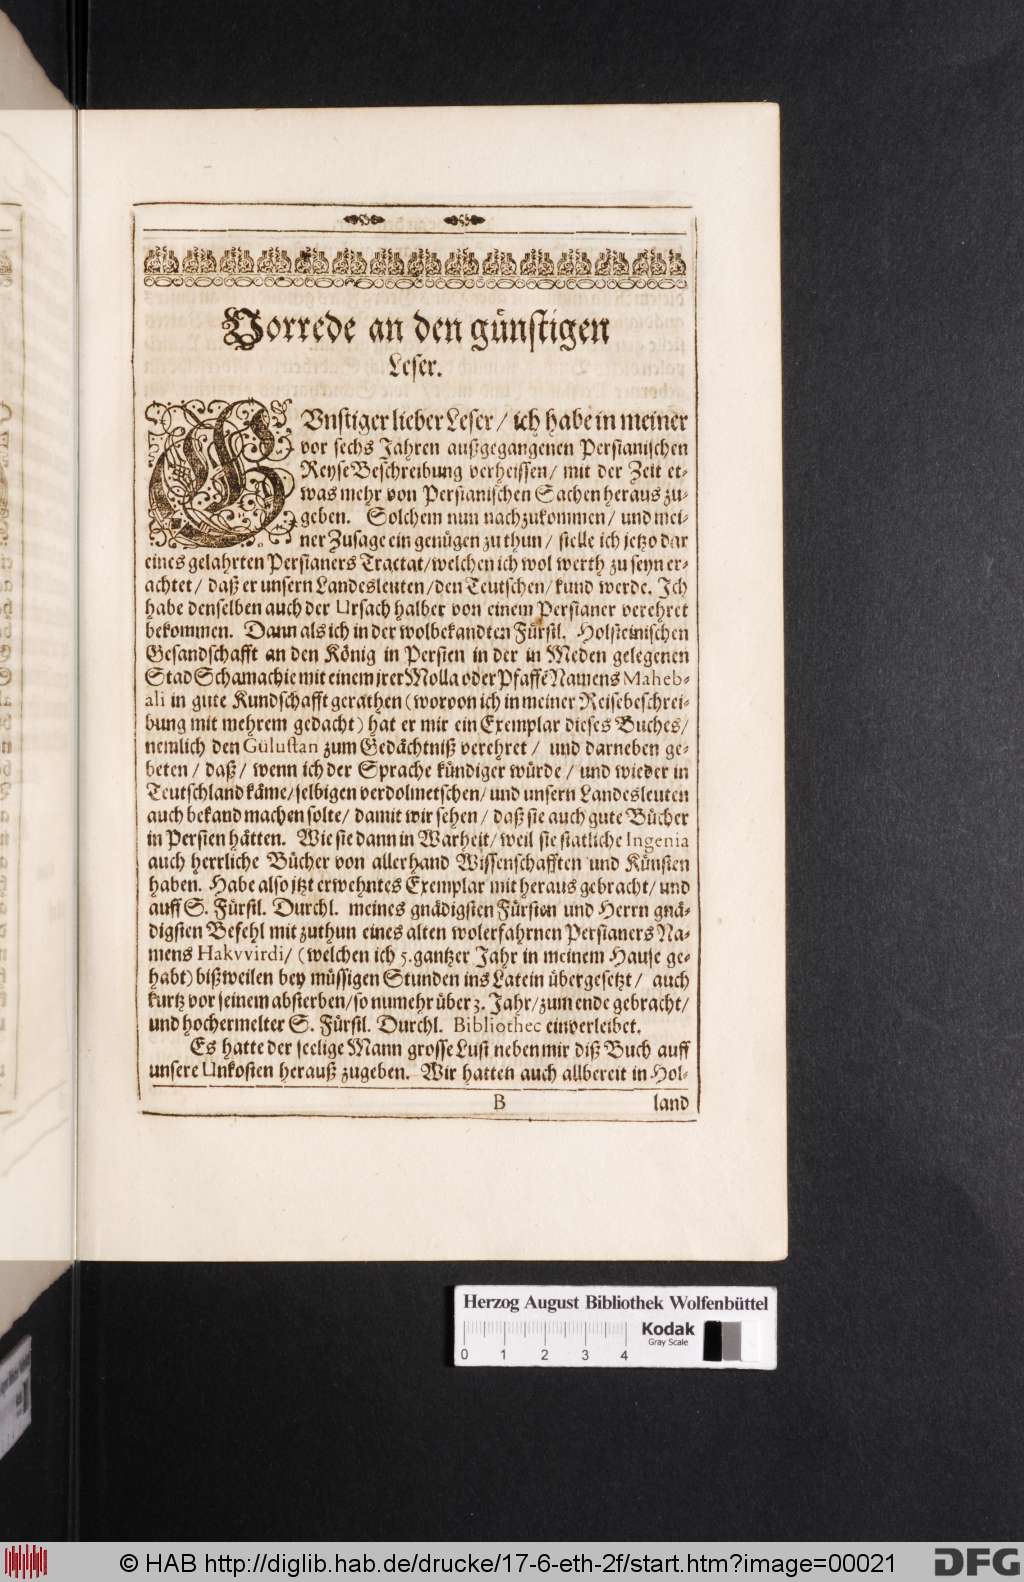 Vorrede an den günstigen
Leser.
GUnstiger lieber Leser / ich habe in meiner
vor sechs Jahren außgegangenen Persianischen
Reyse Beschreibung verheissen / mit der Zeit et-
was mehr von Persianischen Sachen heraus zu-
geben. Solchem nun nachzukommen / und mei-
ner Zusage ein genügen zu thun / stelle ich jetzo dar
eines gelahrten Persianers Tractat / welchen ich wol werth zu seyn er-
achtet / daß er unsern Landesleuten / den Teutschen / kund werde. Ich
habe denselben auch der Ursach halber von einem Persianer verehret
bekommen. Dann als ich in der wolbekandten Fürstl. Holsteinischen
Gesandschafft an den König in Persien in der in Meden gelegenen
Stad Schamachie mit einem jrer Molla oder Pfaffē Namens Maheb-
ali in gute Kundschafft gerathen (worvon ich in meiner Reisebeschrei-
bung mit mehrem gedacht) hat er mir ein Exemplar dieses Buches /
nemlich den Gülustan zum Gedächtniß verehret / und darneben ge-
beten / daß / wenn ich der Sprache kündiger würde / und wieder in
Teutschland käme / selbigen verdolmetschen / und unsern Landesleuten
auch bekand machen solte / damit wir sehen / daß sie auch gute Bücher
in Persien hätten. Wie sie dann in Warheit / weil sie statliche Ingenia
auch herrliche Bücher von allerhand Wissenschafften und Künsten
haben. Habe also jtzt erwehntes Exemplar mit heraus gebracht / und
auff S. Fürstl. Durchl. meines gnädigsten Fürsten und Herrn gnä-
digsten Befehl mit zuthun eines alten wolerfahrnen Persianers Na-
mens Hakvvirdi / (welchen ich 5. gantzer Jahr in meinem Hause ge-
habt) bißweilen bey müssigen Stunden ins Latein übergesetzt / auch
kurtz vor seinem absterben / so numehr über 3. Jahr / zum ende gebracht /
und hochermelter S. Fürstl. Durchl. Bibliothec einverleibet.
Es hatte der seelige Mann grosse Lust neben mir diß Buch auff
unsere Unkosten herauß zugeben. Wir hatten auch allbereit in Hol-
B land
Herzog August Bibliothek Wolfenbüttel
0 1 2 3 4
Kodak
Gray Scale
© HAB http://diglib.hab.de/drucke/17-6-eth-2f/start.htm?image=00021
DFG